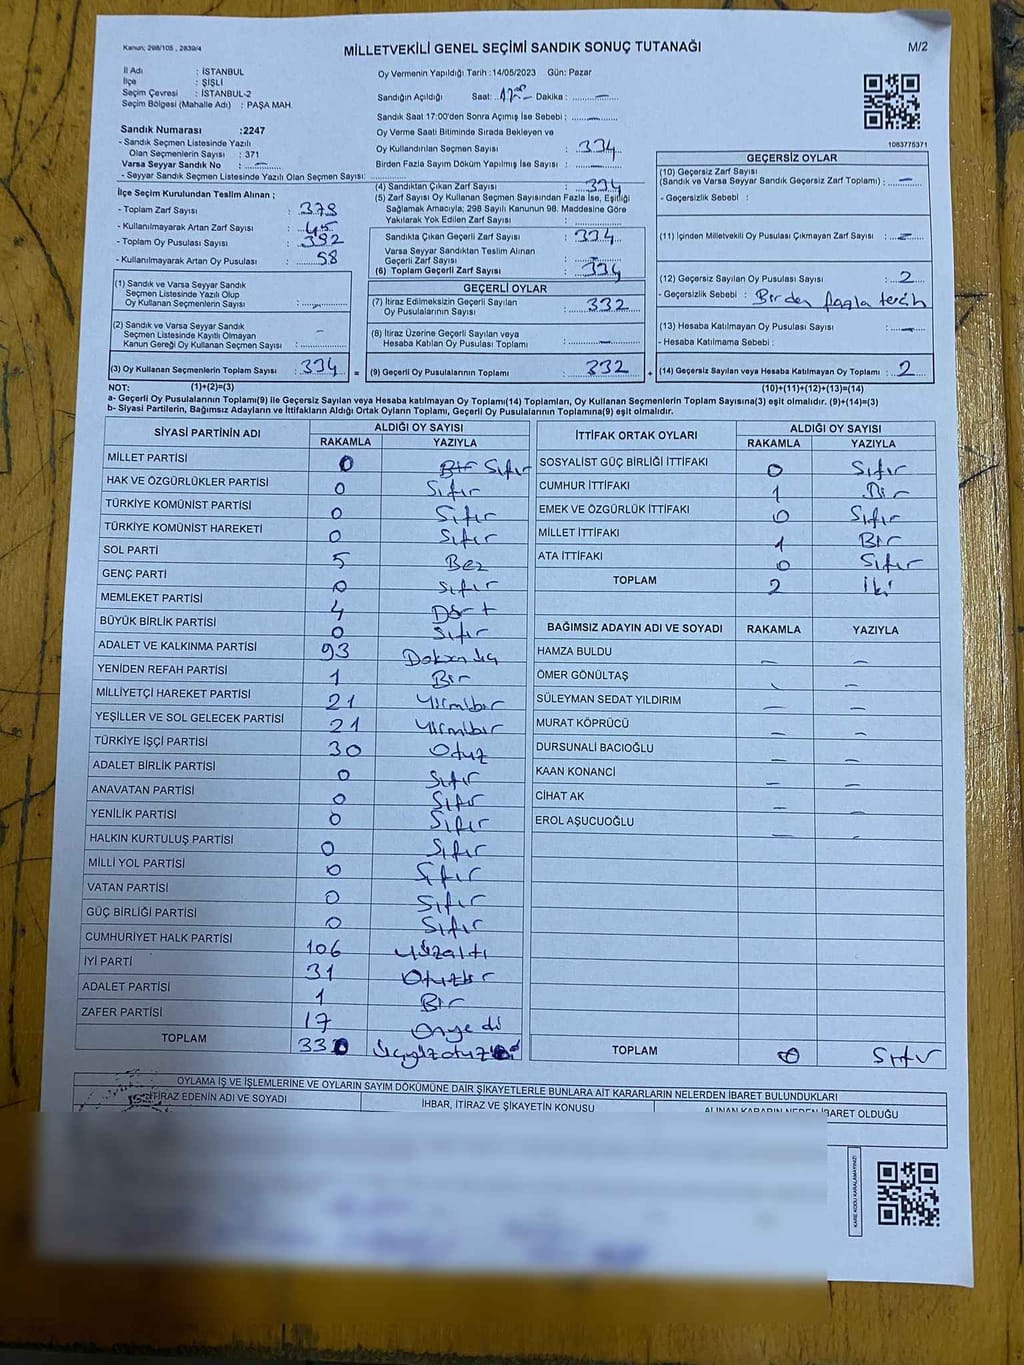 Kanun; 298/105 , 2839/4
MİLLETVEKİLİ GENEL SEÇİMİ SANDIK SONUÇ TUTANAĞI
M/2
İl Adı : İSTANBUL
İlçe : ŞİŞLİ
Seçim Çevresi : İSTANBUL-2
Seçim Bölgesi (Mahalle Adı) : PAŞA MAH.
Sandık Numarası :2247
- Sandık Seçmen Listesinde Yazılı
Olan Seçmenlerin Sayısı : 371
Varsa Seyyar Sandık No : –
- Seyyar Sandık Seçmen Listesinde Yazılı Olan Seçmen Sayısı:
Oy Vermenin Yapıldığı Tarih :14/05/2023 Gün: Pazar
Sandığın Açıldığı Saat: Dakika : –
Sandık Saat 17:00'den Sonra Açımış İse Sebebi : –
Oy Verme Saati Bitiminde Sırada Bekleyen ve
Oy Kullandırılan Seçmen Sayısı : 334
Birden Fazla Sayım Döküm Yapılmış İse Sayısı : –
1083775371
İlçe Seçim Kurulundan Teslim Alınan ;
- Toplam Zarf Sayısı : 379
- Kullanılmayarak Artan Zarf Sayısı : 45
- Toplam Oy Pusulası Sayısı : 392
- Kullanılmayarak Artan Oy Pusulası : 58
(1) Sandık ve Varsa Seyyar Sandık
Seçmen Listesinde Yazılı Olup
Oy Kullanan Seçmenlerin Sayısı : –
(2) Sandık ve Varsa Seyyar Sandık
Seçmen Listesinde Kayıtlı Olmayan
Kanun Gereği Oy Kullanan Seçmen Sayısı : –
(3) Oy Kullanan Seçmenlerin Toplam Sayısı : 334 =
(4) Sandıktan Çıkan Zarf Sayısı : 334
(5) Zarf Sayısı Oy Kullanan Seçmen Sayısından Fazla İse, Eşitliği
Sağlamak Amacıyla; 298 Sayılı Kanunun 98. Maddesine Göre
Yakılarak Yok Edilen Zarf Sayısı :
Sandıkta Çıkan Geçerli Zarf Sayısı : 334
Varsa Seyyar Sandıktan Teslim Alınan
Geçerli Zarf Sayısı : –
(6) Toplam Geçerli Zarf Sayısı : 334
GEÇERLİ OYLAR
(7) İtiraz Edilmeksizin Geçerli Sayılan
Oy Pusulalarının Sayısı : 332
(8) İtiraz Üzerine Geçerli Sayılan veya
Hesaba Katılan Oy Pusulası Toplamı : –
(9) Geçerli Oy Pusulalarının Toplamı : 332 +
GEÇERSİZ OYLAR
(10) Geçersiz Zarf Sayısı
(Sandık ve Varsa Seyyar Sandık Geçersiz Zarf Toplamı) : –
- Geçersizlik Sebebi :
(11) İçinden Milletvekili Oy Pusulası Çıkmayan Zarf Sayısı : –
(12) Geçersiz Sayılan Oy Pusulası Sayısı : 2
- Geçersizlik Sebebi : Birden fazla tercih
(13) Hesaba Katılmayan Oy Pusulası Sayısı : –
- Hesaba Katılmama Sebebi :
(14) Geçersiz Sayılan veya Hesaba Katılmayan Oy Toplamı : 2
NOT: (1)+(2)=(3) (10)+(11)+(12)+(13)=(14)
a- Geçerli Oy Pusulalarının Toplamı(9) ile Geçersiz Sayılan veya Hesaba katılmayan Oy Toplamı(14) Toplamları, Oy Kullanan Seçmenlerin Toplam Sayısına(3) eşit olmalıdır. (9)+(14)=(3)
b- Siyasi Partilerin, Bağımsız Adayların ve İttifakların Aldığı Ortak Oyların Toplamı, Geçerli Oy Pusulalarının Toplamına(9) eşit olmalıdır.
SİYASİ PARTİNİN ADI ALDIĞI OY SAYISI
RAKAMLA YAZIYLA
MİLLET PARTİSİ 0 Bir Sıfır
HAK VE ÖZGÜRLÜKLER PARTİSİ 0 Sıfır
TÜRKİYE KOMÜNİST PARTİSİ 0 Sıfır
TÜRKİYE KOMÜNİST HAREKETİ 0 Sıfır
SOL PARTİ 5 Beş
GENÇ PARTİ 0 Sıfır
MEMLEKET PARTİSİ 4 Dört
BÜYÜK BİRLİK PARTİSİ 0 Sıfır
ADALET VE KALKINMA PARTİSİ 93 Doksan üç
YENİDEN REFAH PARTİSİ 1 Bir
MİLLİYETÇİ HAREKET PARTİSİ 21 Yirmibir
YEŞİLLER VE SOL GELECEK PARTİSİ 21 Yirmibir
TÜRKİYE İŞÇİ PARTİSİ 30 Otuz
ADALET BİRLİK PARTİSİ 0 Sıfır
ANAVATAN PARTİSİ 0 Sıfır
YENİLİK PARTİSİ 0 Sıfır
HALKIN KURTULUŞ PARTİSİ 0 Sıfır
MİLLİ YOL PARTİSİ 0 Sıfır
VATAN PARTİSİ 0 Sıfır
GÜÇ BİRLİĞİ PARTİSİ 0 Sıfır
CUMHURİYET HALK PARTİSİ 106 Yüzaltı
İYİ PARTİ 31 Otuzbir
ADALET PARTİSİ 1 Bir
ZAFER PARTİSİ 17 Onyedi
TOPLAM 330 üçyüzotuz
İTTİFAK ORTAK OYLARI ALDIĞI OY SAYISI
RAKAMLA YAZIYLA
SOSYALİST GÜÇ BİRLİĞİ İTTİFAKI 0 Sıfır
CUMHUR İTTİFAKI 1 Bir
EMEK VE ÖZGÜRLÜK İTTİFAKI 0 Sıfır
MİLLET İTTİFAKI 1 Bir
ATA İTTİFAKI 0 Sıfır
TOPLAM 2 İki
BAĞIMSIZ ADAYIN ADI VE SOYADI RAKAMLA YAZIYLA
HAMZA BULDU – –
ÖMER GÖNÜLTAŞ – –
SÜLEYMAN SEDAT YILDIRIM – –
MURAT KÖPRÜCÜ – –
DURSUNALİ BACIOĞLU – –
KAAN KONANCİ – –
CİHAT AK – –
EROL AŞUCUOĞLU – –
TOPLAM 0 Sıfır
OYLAMA İŞ VE İŞLEMLERİNE VE OYLARIN SAYIM DÖKÜMÜNE DAİR ŞİKAYETLERLE BUNLARA AİT KARARLARIN NELERDEN İBARET BULUNDUKLARI
İTİRAZ EDENİN ADI VE SOYADI İHBAR, İTİRAZ VE ŞİKAYETİN KONUSU ALINAN KARARIN NEDEN İBARET OLDUĞU
KARE KODU KARALAMAYINIZ!